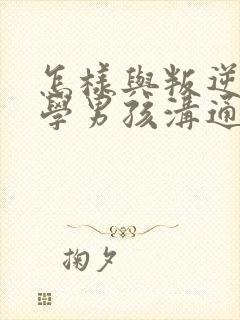 怎樣與叛逆
學男孩溝通
掬夕